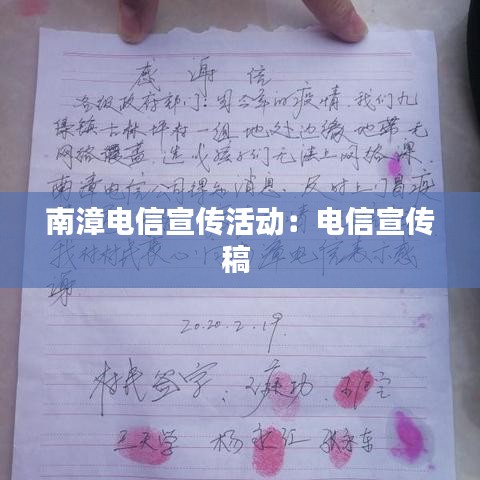 感谢信
各级政府部门：因今年的疫情，我们九
集镇古林坪村一组地处边缘地带无
网络覆盖，造成孩子们无法上网络课，
南漳电信公司得知消息，及时上门冒疫
南漳电信宣传活动：电信宣传
稿
我村村民衷心 南漳电信表示感
谢
2020.2.19.
村民签字：
王天学 杨永红 张永东